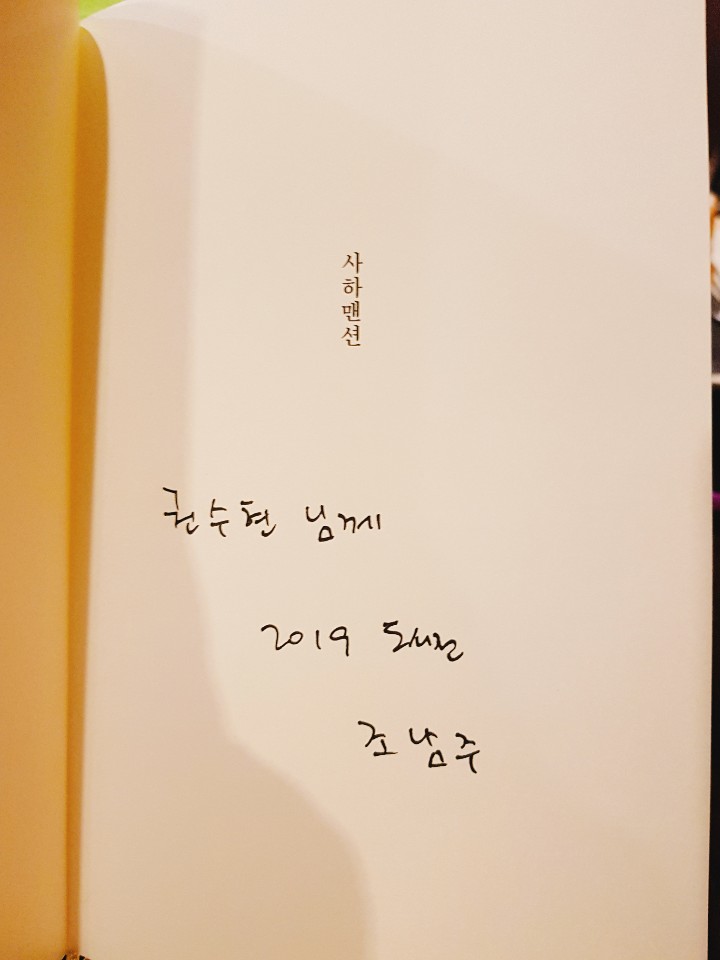 사하맨션
권수현 님께
2019 도서전
조남주